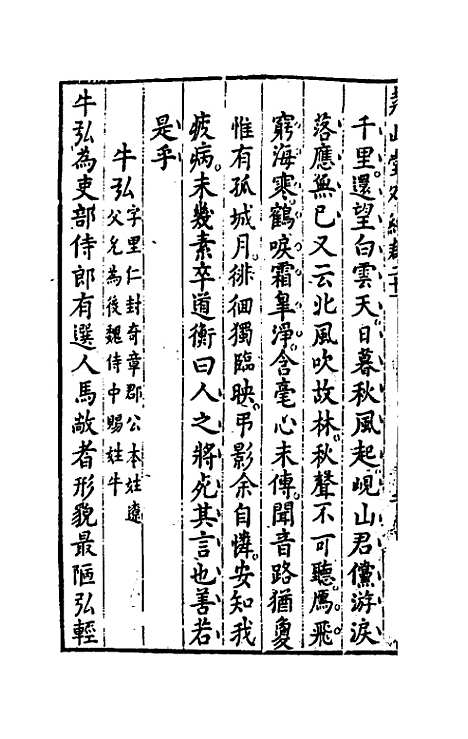 千里還望白雲天日暮秋風起峴山君儻游淚
落應無已又云北風吹故林秋聲不可聽鴈飛
窮海寒鶴唳霜皐淨含毫心未傳聞音路猶敻
惟有孤城月徘徊獨臨映弔影余自憐安知我
疲病未幾素卒道衡曰人之將死其言也善若
是乎
牛弘字里仁封奇章郡公本姓遼
父允為後魏侍中賜姓牛
牛弘為吏部侍郎有選人馬敞者形貌最陋弘輕